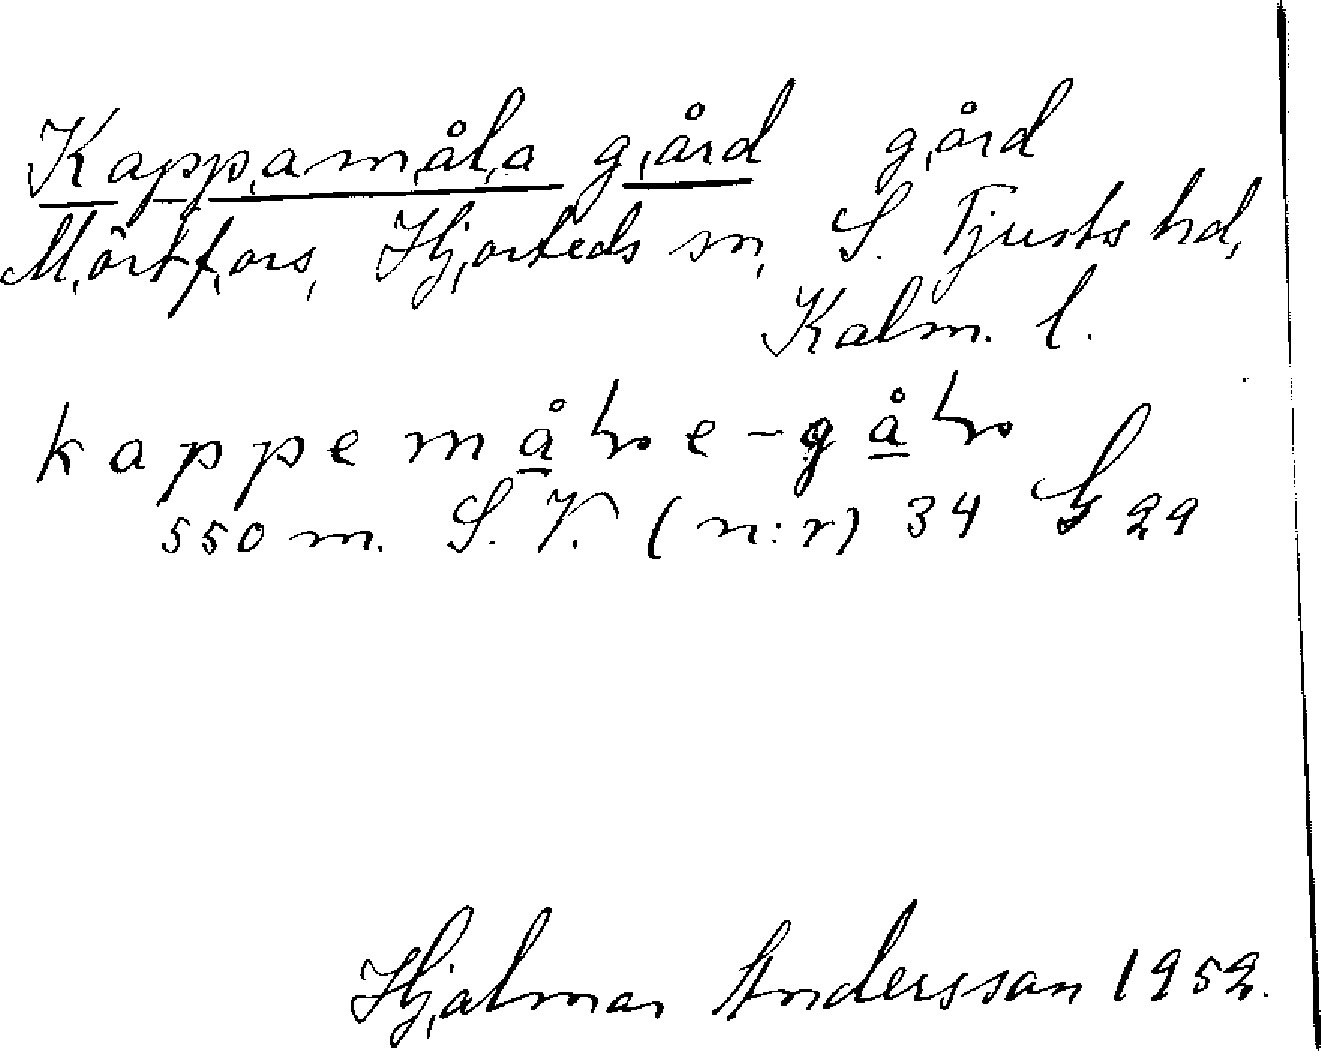 Kappamåla gård gård
Mörtfors, Hjorteds sn, S. Tjusts hd,
Kalm. l.
550 m. S. V. (n:r) 34 G 29
Hjalmar Andersson 1952.